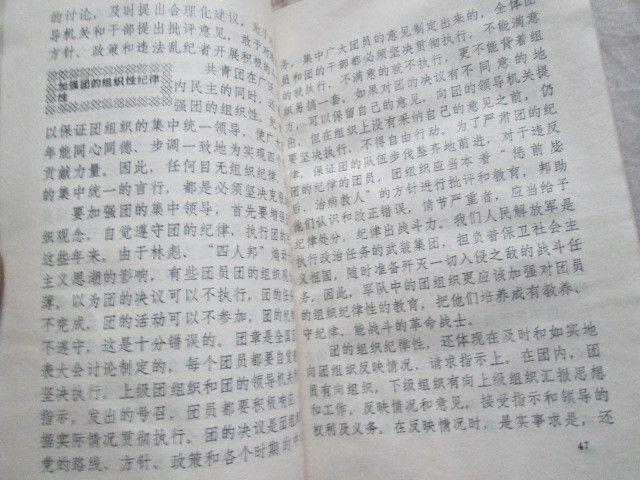 的讨论，及时提出合理化建议，敢于
导机关和干部提出批评意见，敢于
方针、政策和违法乱纪者开展积极
加强团的组织性纪律
性
共青团在广
内民主的同时，还
强团的组织性、纪
以保证团组织的集中统一领导，使广
年能同心同德、步调一致地为实现四个
贡献力量。因此，任何目无组织纪律、
的集中统一的言行，都是必须坚决克
要加强团的集中领导，首先要增强
织观念，自觉遵守团的纪律，执行团的
这些年来，由于林彪、“四人邦”煽动
主义思潮的影响，有些团员团的组织观
薄，以为团的决议可以不执行，团的任
不完成，团的活动可以不参加，团的纪
不遵守，这是十分错误的。团章是全国
表大会讨论制定的，每个团员都要自觉
坚决执行。上级团组织和团的领导机关
指示，发出的号召，团员都要积极响应
据实际情况贯彻执行。团的决议是团组
党的路线、方针、政策和各个时期的
务，集中广大团员的意见制定出来的，全体团
员和团的干部都必须坚决贯彻执行，不能满意
的就执行，不满意的就不执行，更不能背着组
织另搞一套。如果对团的决议有不同意的地
方，可以保留自己的意见，向团的领导机关提
出，但在组织上没有采纳自己的意见之前，仍
要坚决执行，不得自由行动。为了严肃团的纪
律，保证团的队伍步伐整齐地前进，对于违反
团的纪律的团员，团组织应当本着“惩前毖
后、治病救人”的方针进行批评和教育，邦助
他们认识和改正错误，情节严重者，应当给予
纪律处分，纪律出战斗力。我们人民解放军是
执行政治任务的武装集团，担负着保卫社会主
义祖国，随时准备歼灭一切入侵之敌的战斗任
务。因此，军队中的团组织更应该加强对团员
的组织纪律性的教育，把他们培养成有教养、
守纪律、能战斗的革命战士。
团的组织纪律性，还体现在及时和如实地
向团组织反映情况、请求指示上。在团内，团
员有向组织，下级组织有向上级组织汇报思想
和工作，反映情况和意见，接受指示和领导的
权利及义务。在反映情况时，是实事求是，还
47